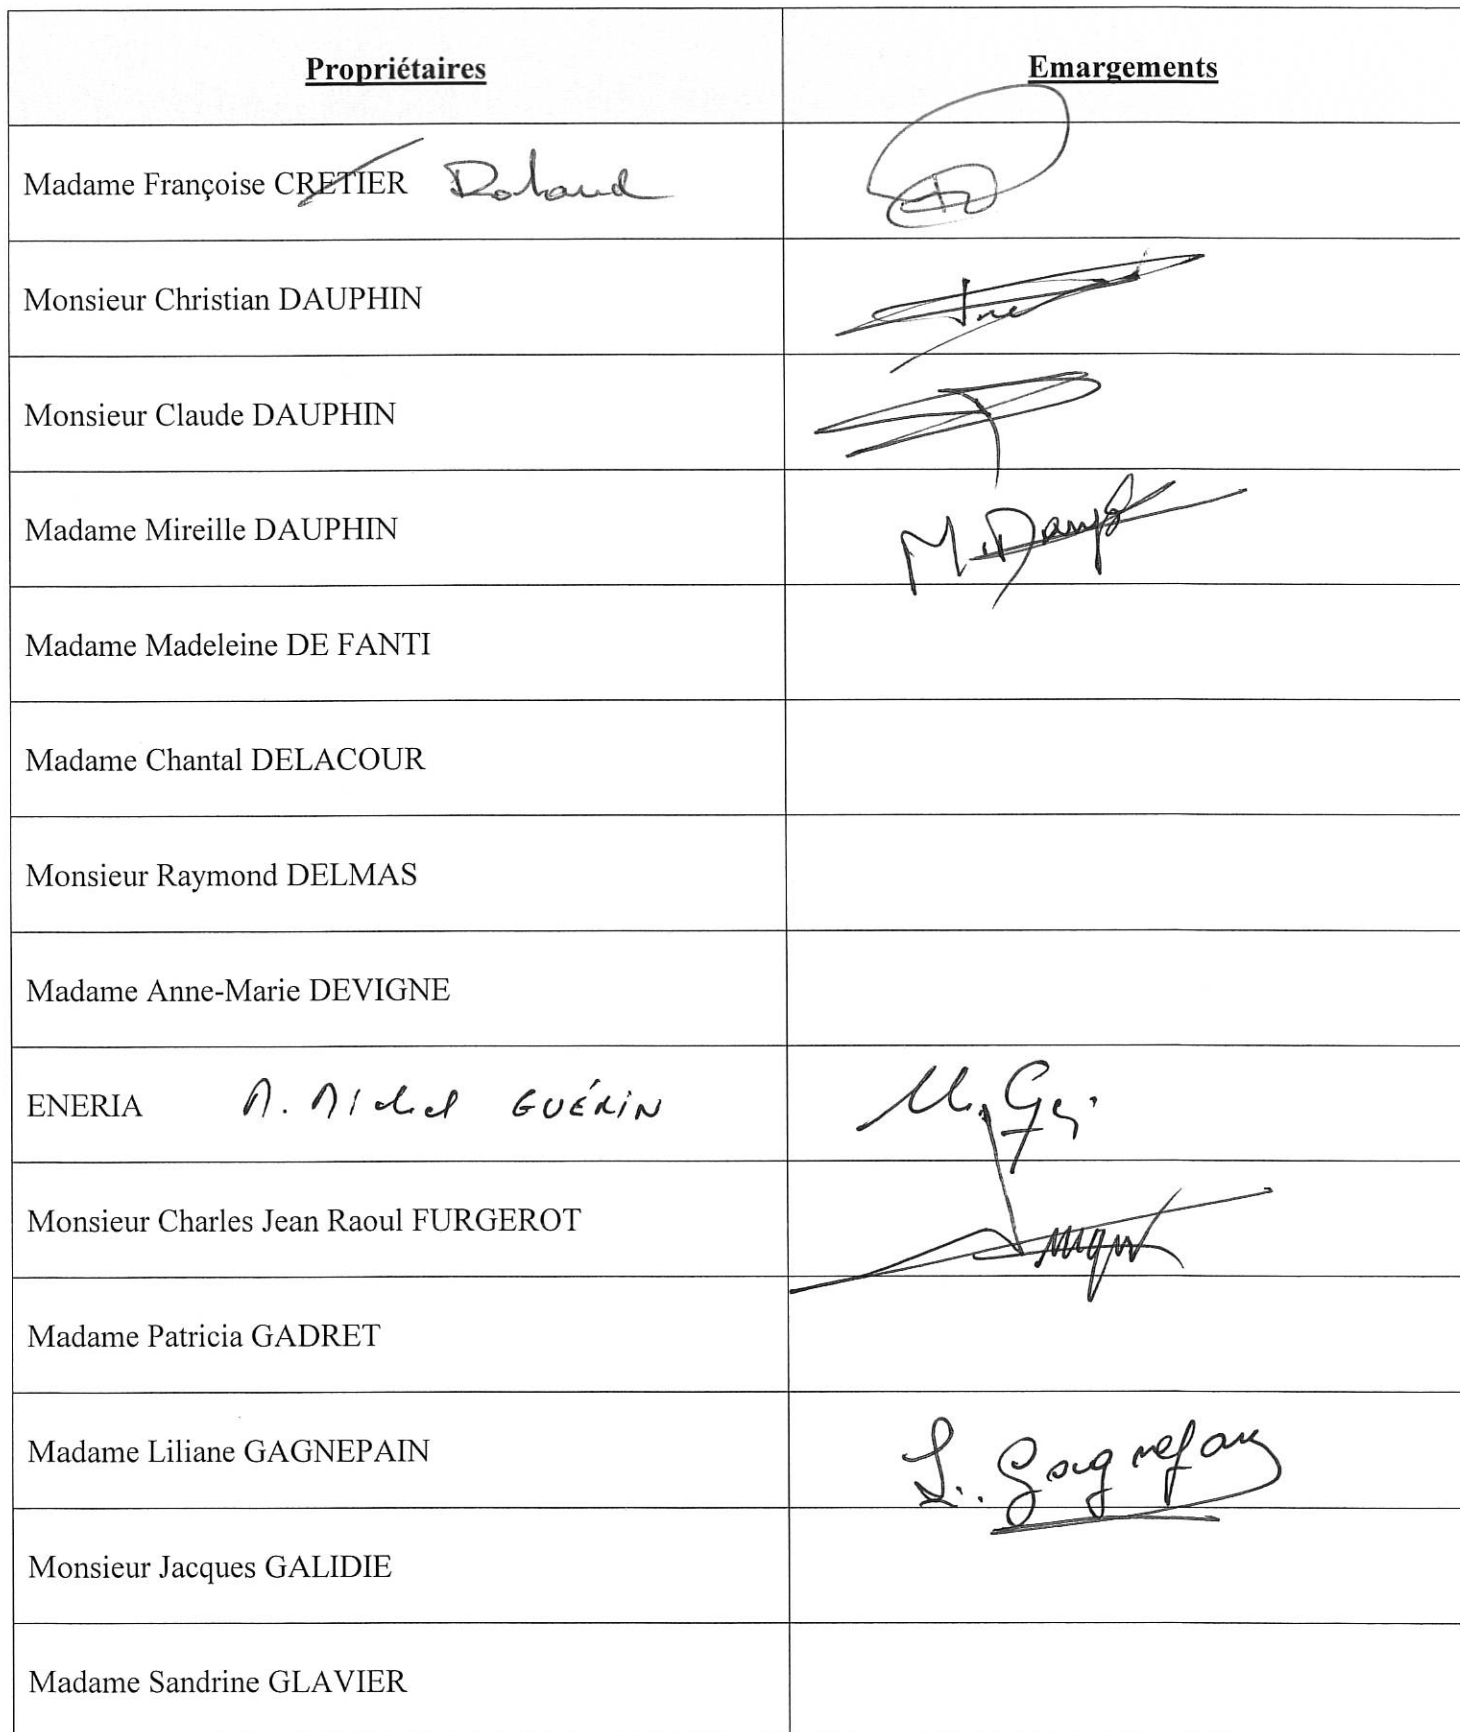 Propriétaires Emargements
Madame Françoise CRETIER
Monsieur Christian DAUPHIN
Monsieur Claude DAUPHIN
Madame Mireille DAUPHIN M. Dauph
Madame Madeleine DE FANTI
Madame Chantal DELACOUR
Monsieur Raymond DELMAS
Madame Anne-Marie DEVIGNE
ENERIA M. Michel GUÉRIN
Monsieur Charles Jean Raoul FURGEROT
Madame Patricia GADRET
Madame Liliane GAGNEPAIN L. Gagnepain
Monsieur Jacques GALIDIE
Madame Sandrine GLAVIER